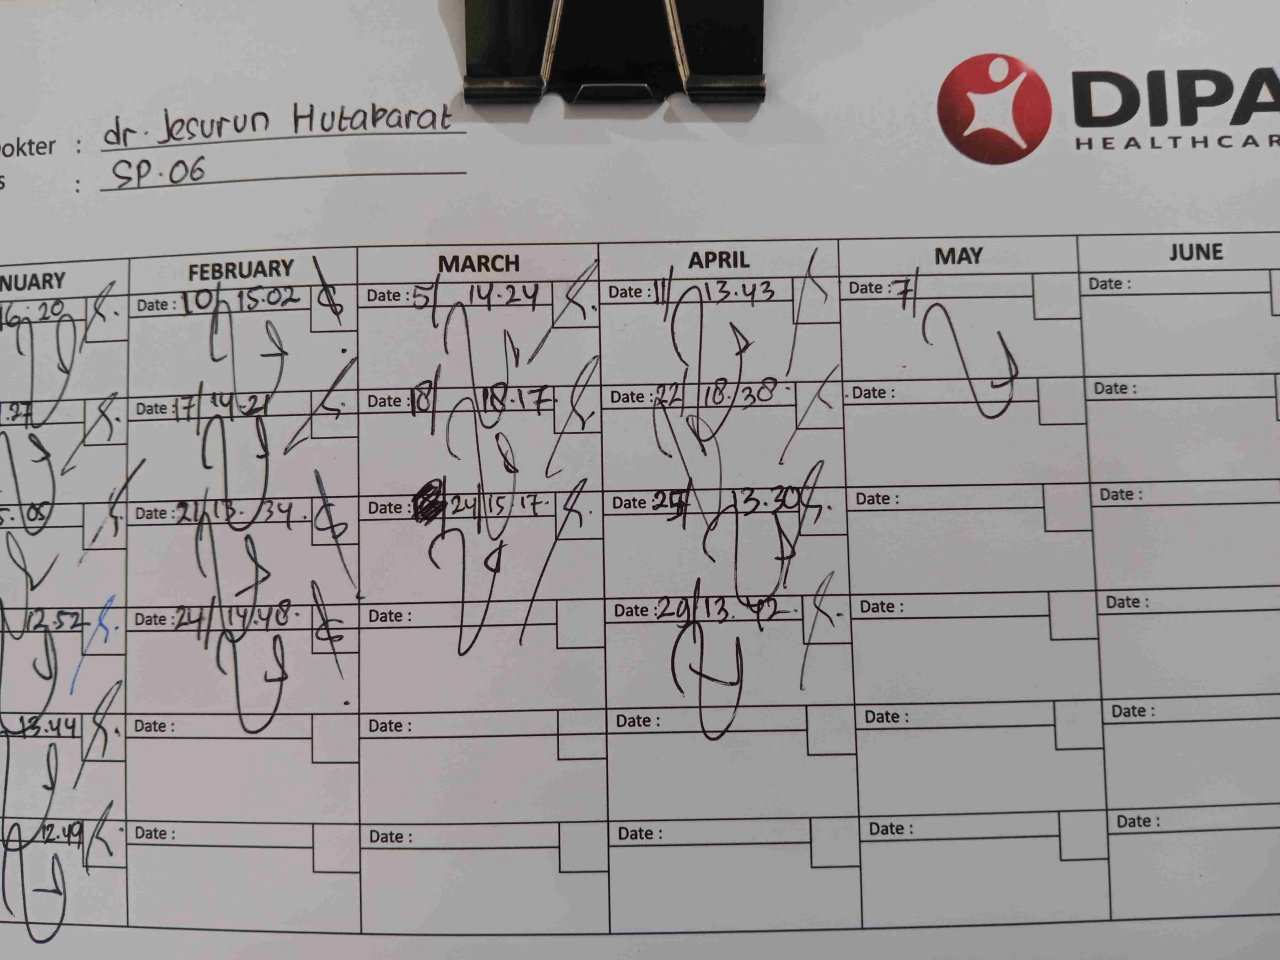 DIPA
HEALTHCAR
okter : dr. Jesurun Hutabarat
s : SP.06
NUARY FEBRUARY MARCH APRIL MAY JUNE
16.20 Date : 10/ 15.02 Date : 5/ 14.24 Date : 11/ 13.43 Date : 7/ Date :
.27 Date : 17/ 14.21 Date : 18/ 18.17 Date : 22/ 18.38 Date : Date :
5.05 Date : 21/ 13.34 Date : 24/ 15.17 Date : 25/ 13.30 Date : Date :
12.52 Date : 24/ 14.48 Date : Date : 29/ 13.42 Date : Date :
13.44 Date : Date : Date : Date : Date :
12.49 Date : Date : Date : Date : Date :